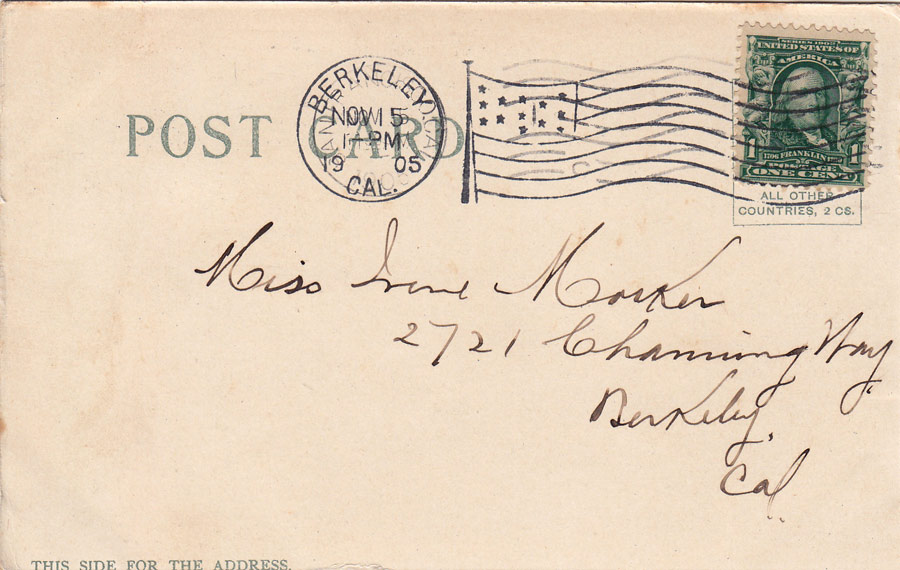 POST CARD
BERKELEY,
NOV 15
1-PM
19 05
CAL.
SERIES 1902
UNITED STATES OF
AMERICA
1 FRANKLIN 1
POSTAGE
ONE CENT
ALL OTHER
COUNTRIES, 2 CS.
Miss Irene
2721 Channing Way,
Berkeley,
Cal
THIS SIDE FOR THE ADDRESS.